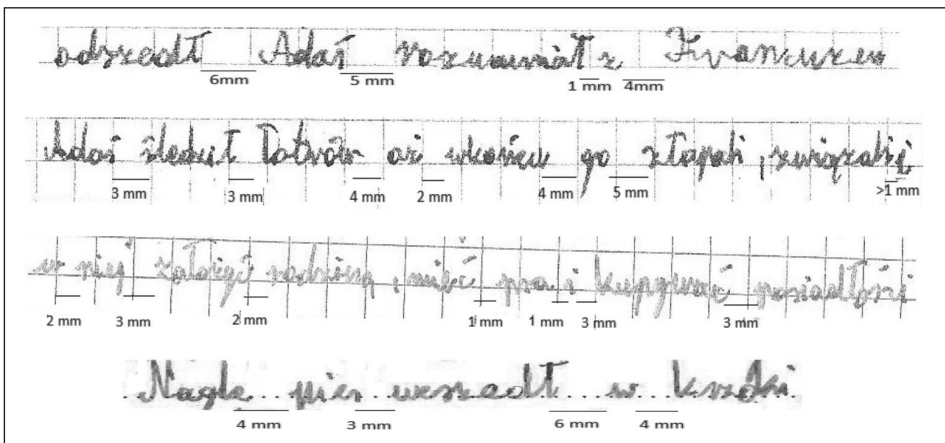 odszedł Adaś rozumiał z Francuzem
6mm 5 mm 1 mm 4mm
Adaś śledził łotrów aż wkońcu go złapali , związali i
3 mm 3 mm 4 mm 2 mm 4 mm 5 mm >1 mm
w niej założyć rodzinę , mieć psa i kupywać posiadłości
2 mm 3 mm 2 mm 1 mm 1 mm 3 mm 3 mm
Nagle pies wszedł w krzaki
4 mm 3 mm 6 mm 4 mm